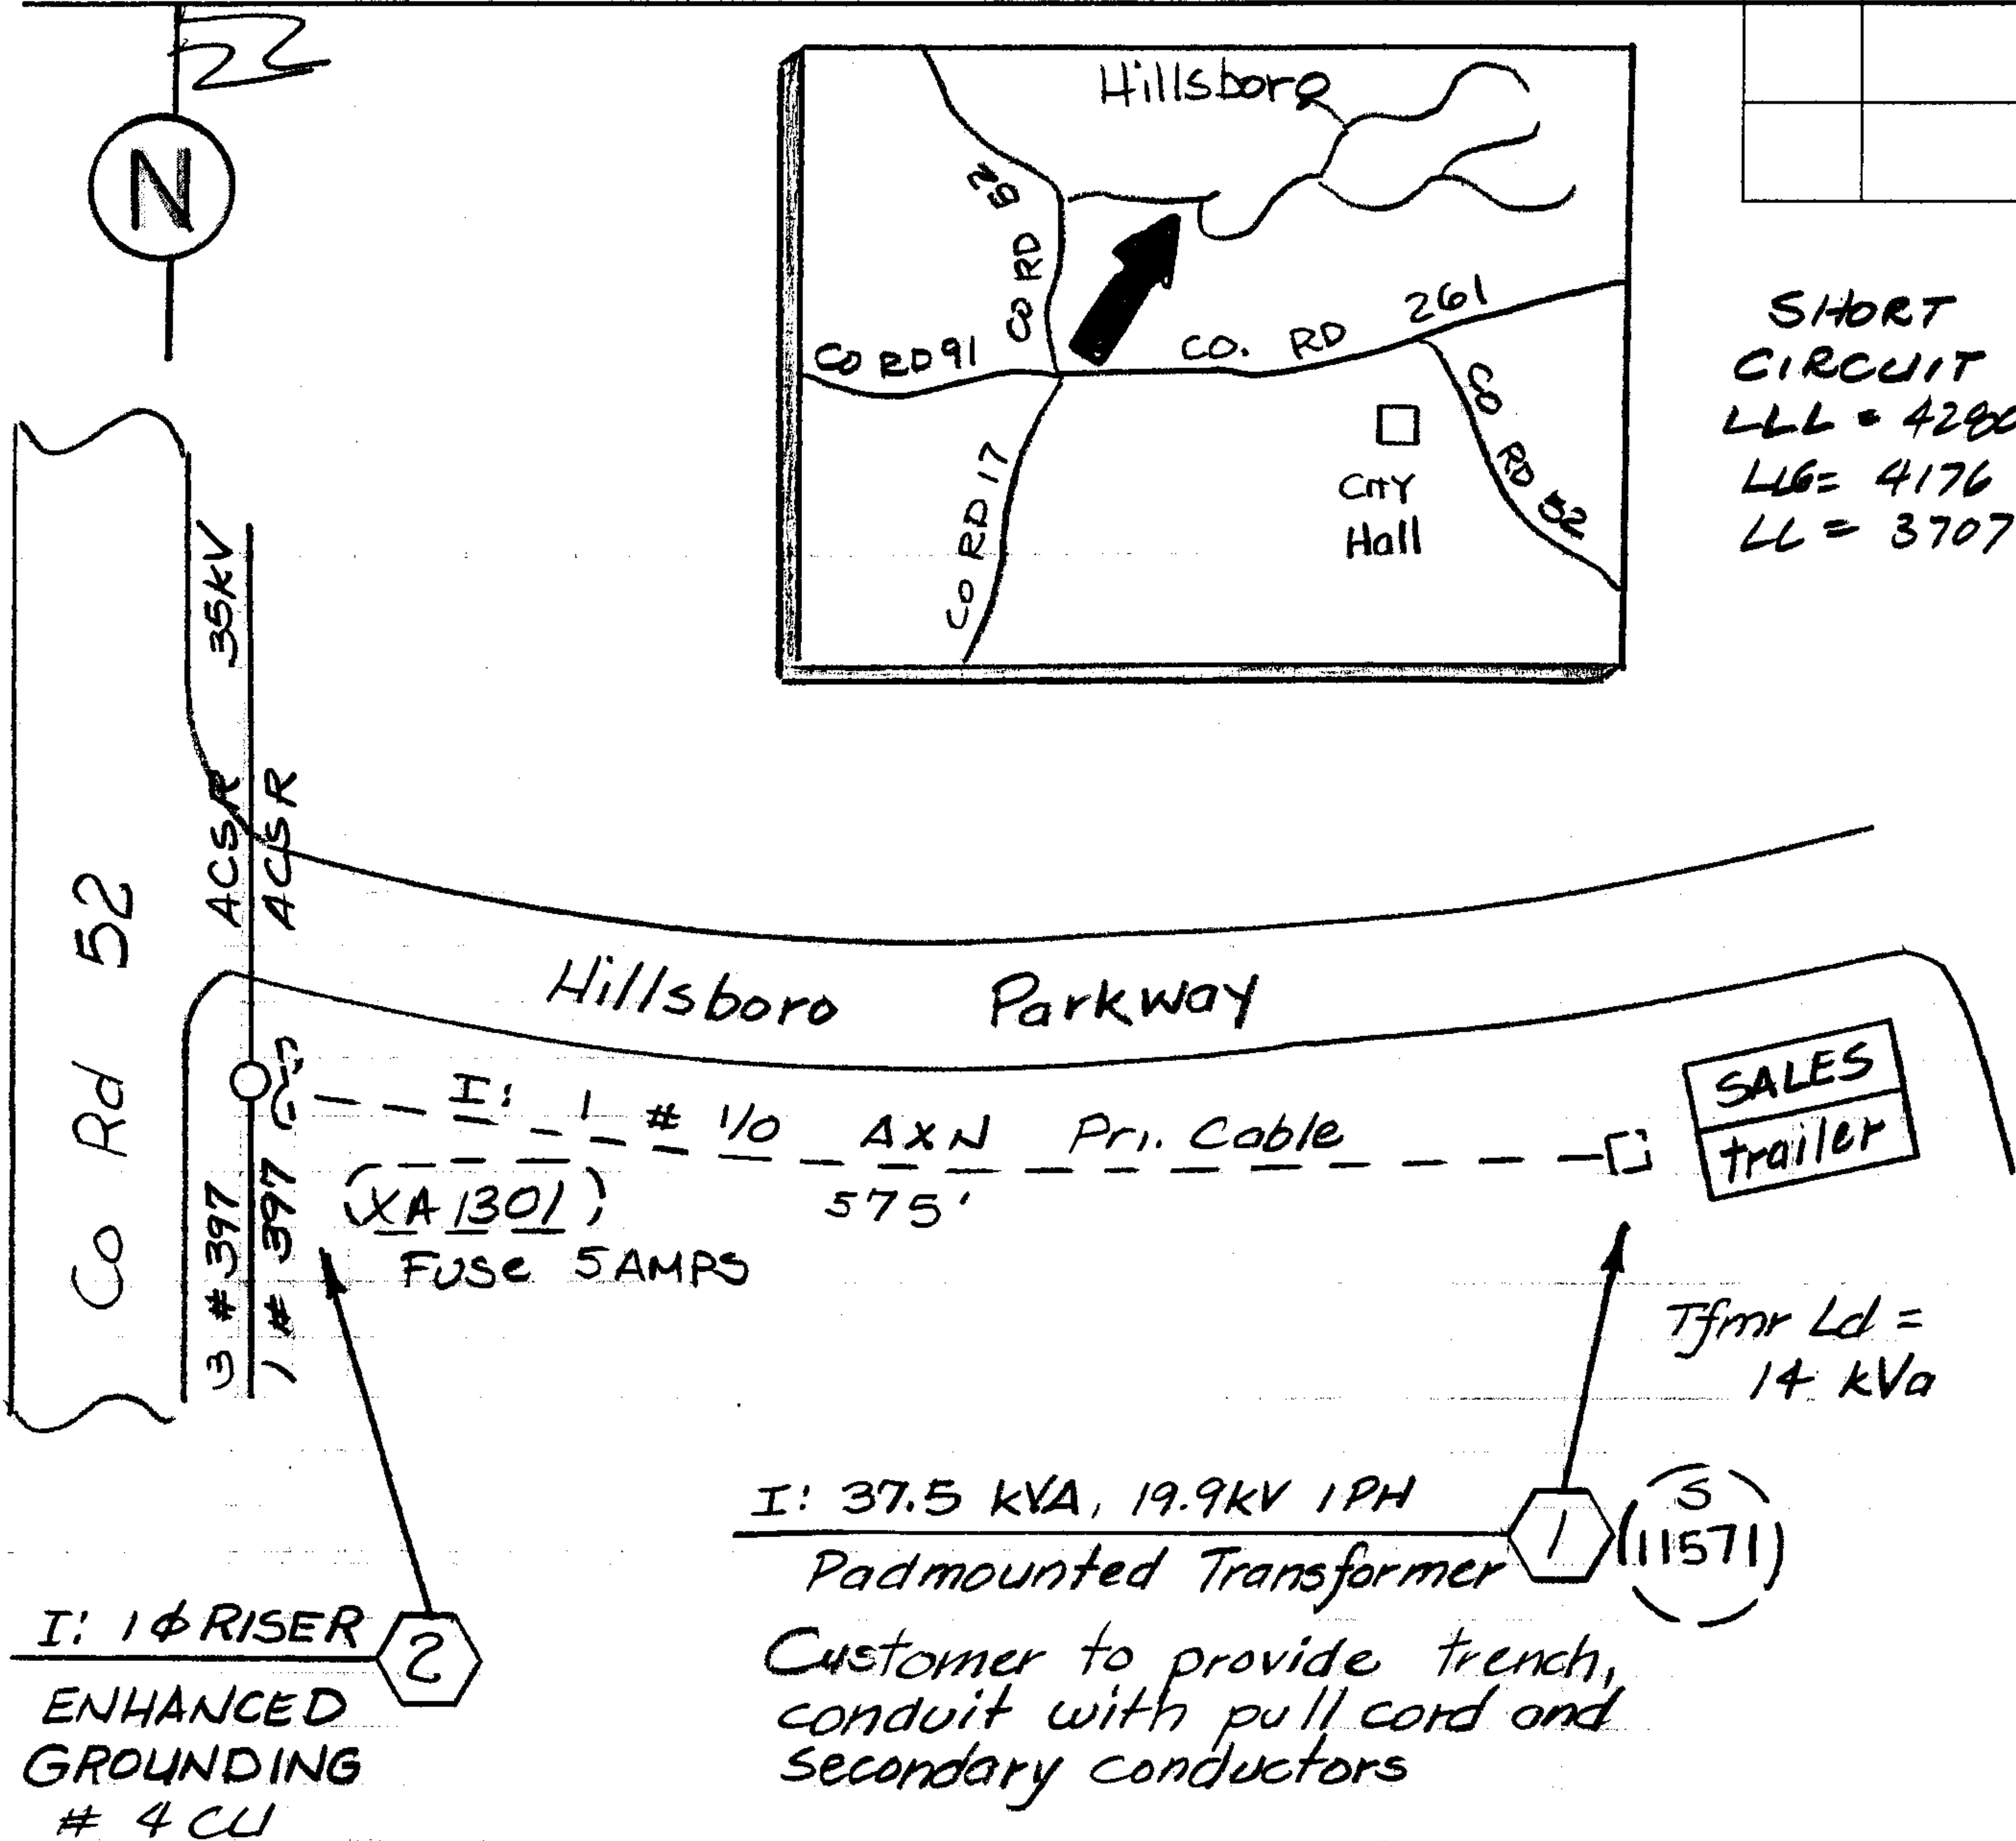 N
Hillsboro
CO RD 52
CO RD 91
CO. RD 261
CO RD 17
City
Hall
CO RD 52
SHORT
CIRCUIT
LLL = 4280
LLG= 4176
LL = 3707
35kV
ACSR
ACSR
3 #397
1 # 397
Co Rd 52
Hillsboro Parkway
I: 1 # 1/0 AXN Pri. Cable
575'
XA 1301
FUSe 5AMPS
SALES
trailer
Tfmr Ld =
14 kVa
I: 37.5 kVA, 19.9kV 1PH
Padmounted Transformer
1
S
11571
Customer to provide trench,
conduit with pull cord and
secondary conductors
I: 1 ϕ RISER
2
ENHANCED
GROUNDING
# 4 CU